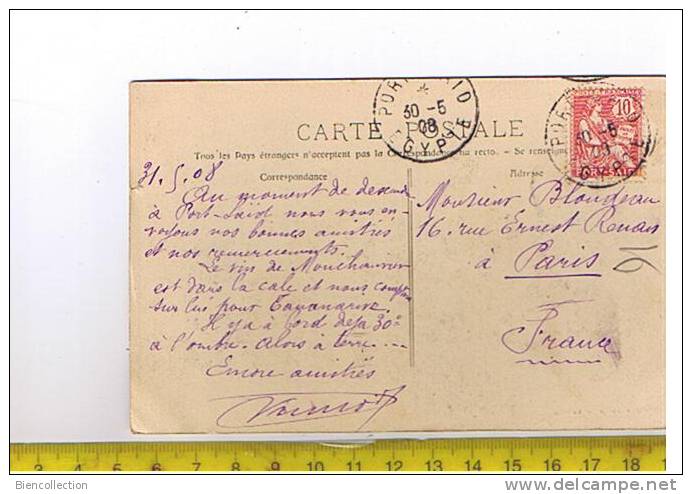 PORT SAID
30 -5
08
EGYPTE
CARTE POSTALE
Tous les Pays étrangers n'acceptent pas la Correspondance au recto. - Se renseigner
Correspondance
Adresse
10
31.5.08
Au moment de descendre
à Port-Saïd nous vous en-
voyons nos bonnes amitiés
et nos remerciements.
Le vin de
est dans la cale et nous comptons
sur lui pour Tananarive.
Il y a à bord déjà 30°
à l'ombre. Alors à terre....
Encore amitiés
Monsieur Blondeau
16, rue Ernest Renan
à Paris
France
3 4 5 6 7 8 9 10 11 12 13 14 15 16 17 18
Biencollection
www.delcampe.net